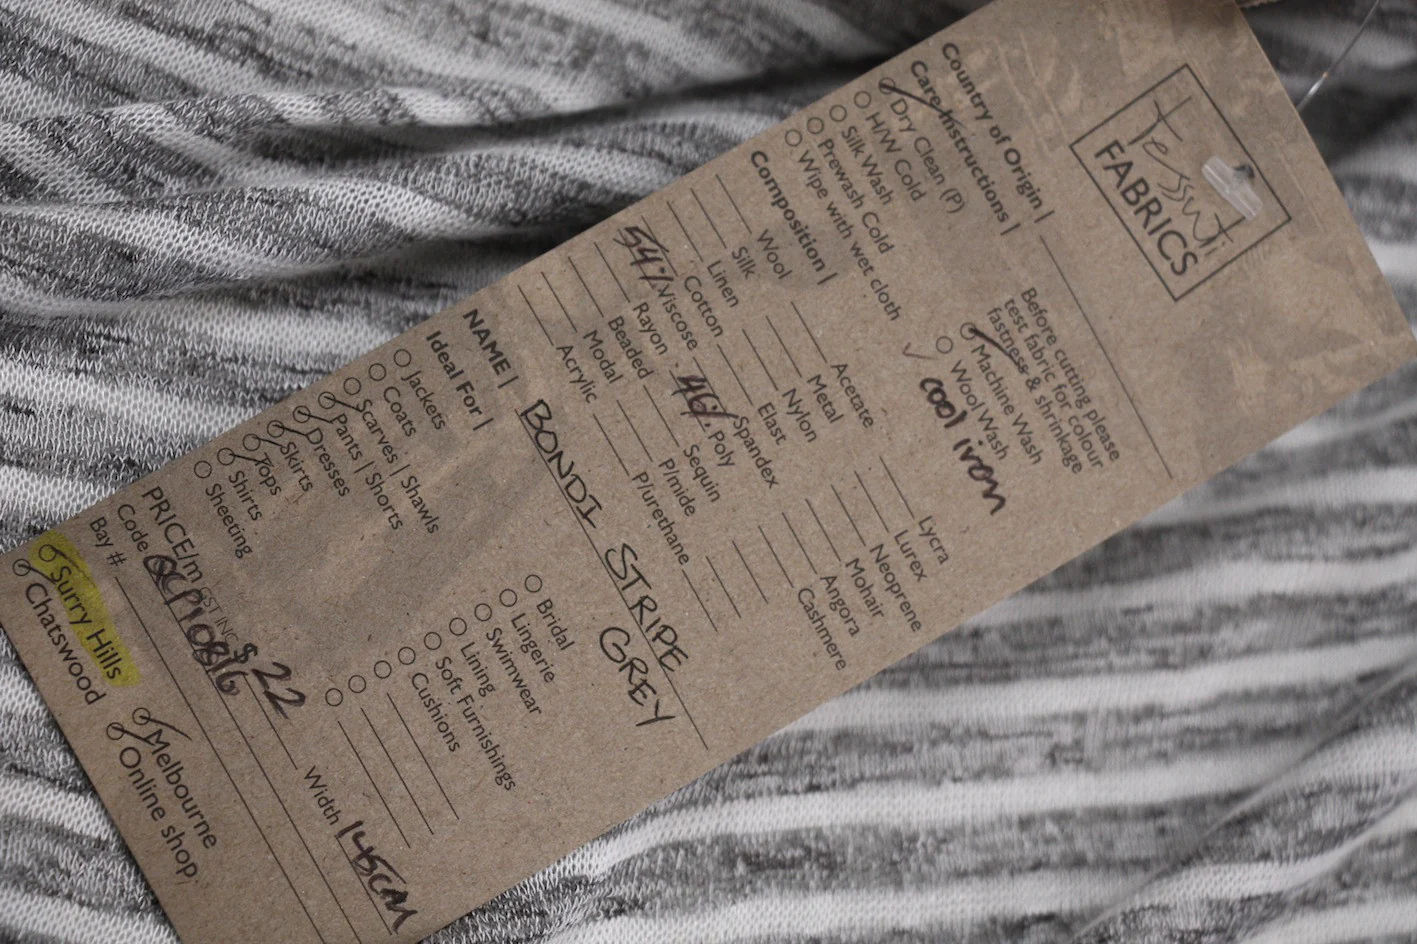 Tessuti
FABRICS
Country of Origin |
Care Instructions |
Dry Clean (P)
H/W Cold
Silk Wash
Prewash Cold
Wipe with wet cloth
Before cutting please
test fabric for colour
fastness & shrinkage
Machine Wash
Wool Wash
✓ cool iron
Composition |
Wool
Silk
Linen
Cotton
54% Viscose
Rayon
Beaded
Modal
Acrylic
Acetate
Metal
Nylon
Elast
Spandex
46% Poly
Sequin
P/mide
P/urethane
Lycra
Lurex
Neoprene
Mohair
Angora
Cashmere
NAME | BONDI STRIPE
GREY
Ideal For |
Jackets
Coats
Scarves | Shawls
Pants | Shorts
Dresses
Skirts
Tops
Shirts
Sheeting
Bridal
Lingerie
Swimwear
Lining
Soft Furnishings
Cushions
PRICE/m GST INC $22
Width 145cm
Code
Bay #
Surry Hills
Chatswood
Melbourne
Online shop